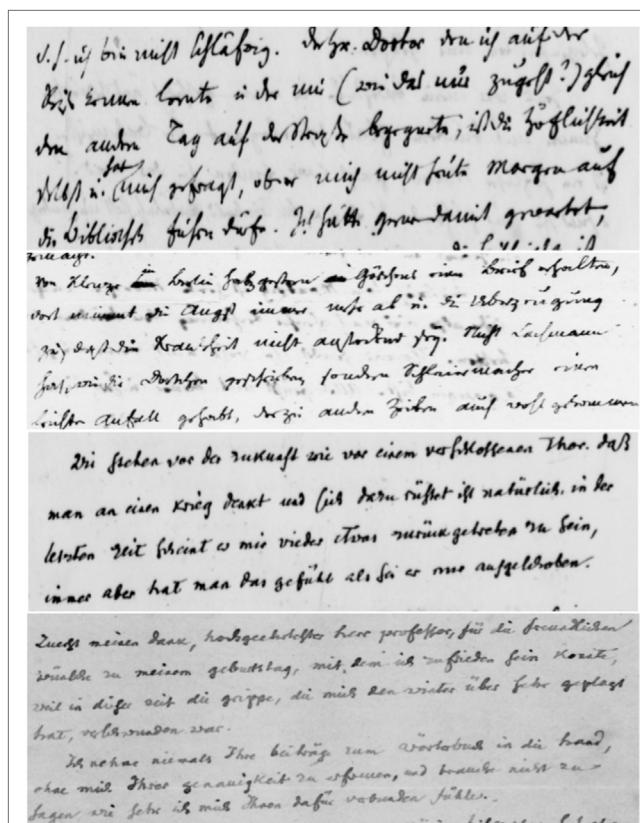 d. h. ich bin nicht schläfrig. Der Hr. Doctor den ich auf der
kennen lernte u. der mir (wie das nur zugeht?) gleich
den andern Tag auf der Straße begegnete, ist die Höflichkeit
selbst u. hat mich gefragt, ob er mich nicht heute Morgen auf
die Bibliothek führen dürfe. Ich hätte gerne damit gewartet,
von Klenze in Berlin hat gestern Göschens einen Brief erhalten,
dort nimmt die Angst immer mehr ab u. die Ueberzeugung
zu, daß die Krankheit nicht ansteckend sey. Nicht Lachmann
hat, wie die Dortchen geschrieben, sondern Schleiermacher einen
leichten Anfall gehabt, der zu andern Zeiten auch wohl gekommen
Wir stehen vor der zukunft wie vor einem verschlossenen Thor. daß
man an einen krieg denkt und sich dazu rüstet ist natürlich. in der
letzten zeit scheint er mir wieder etwas zurückgetreten zu sein,
immer aber hat man das gefühl als sei er nur aufgeschoben.
Zuerst meinen dank, hochgeehrtester herr professor, für die freundlichen
wünsche zu meinem geburtstag, mit dem ich zufrieden sein konte,
weil in dieser zeit die grippe, die mich den winter über sehr geplagt
hat, verschwunden war.
Ich nehme niemals Ihre beiträge zum wörterbuch in die hand,
ohne mich Ihrer genauigkeit zu erfreuen, und brauche nicht zu
sagen wie sehr ich mich Ihnen dafür verbunden fühle.